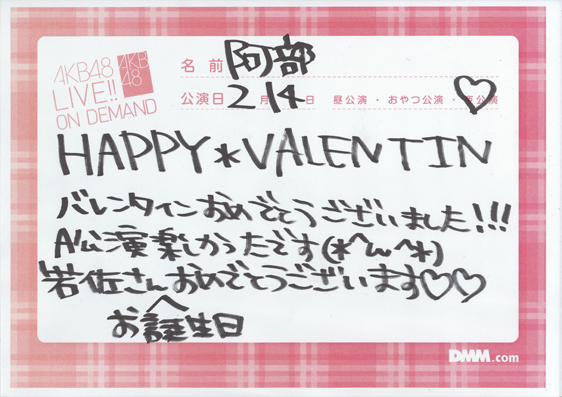 AKB48
LIVE!!
ON DEMAND
AKB
48
名前 阿部
公演日 2月14日 昼公演・おやつ公演・夜公演 ♡
HAPPY*VALENTIN
バレンタインおめでとうございました!!!
A公演楽しかったです(*^ω^*)
若佐さんおめでとうございます♡♡
お誕生日
DMM.com